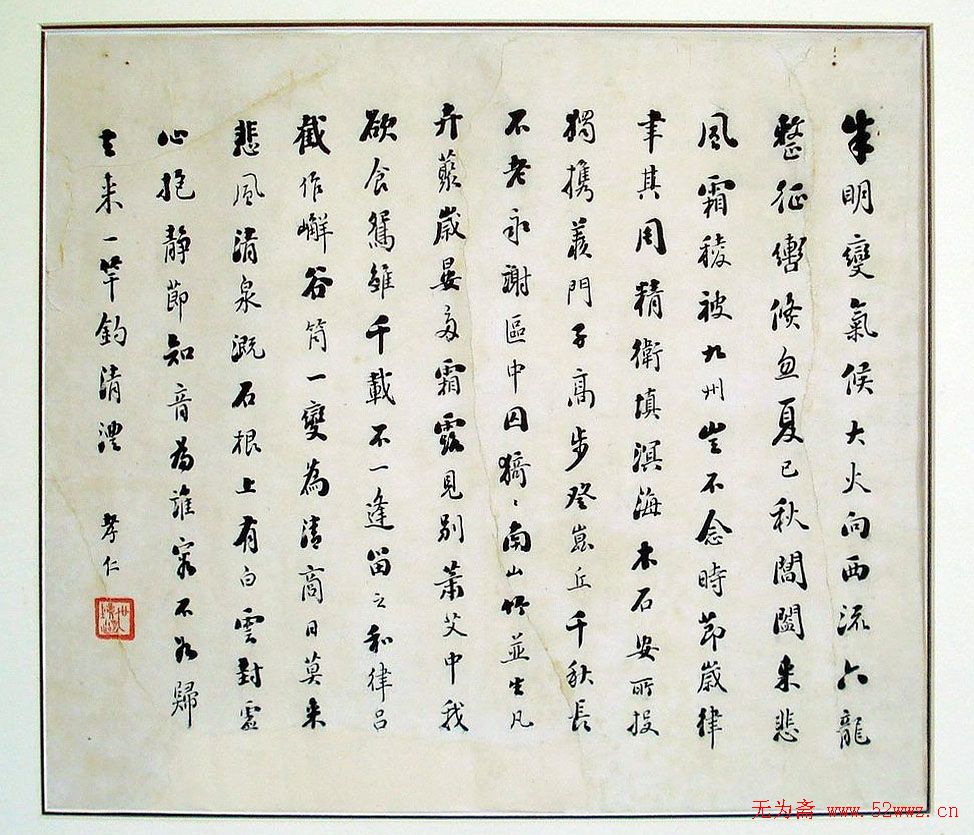 朱明變氣候大火向西流六龍
整征轡倏忽夏已秋閶闔来悲
風霜稜被九州豈不念時節歲律
聿其周精衛填溟海木石安所投
獨携羨門子高步登崑丘千秋長
不老永謝區中囚猗猗南山竹並生凡
卉藂歲晏多霜露見別蕭艾中我
欲食鴛雛千載不一逢留之和律呂
截作嶰谷筒一變為清商日莫来
悲風清泉溉石根上有白雲對虛
心抱静節知音為誰容不如歸
去来一竿釣清澧 孝仁
无为斋 www.52wwz.cn